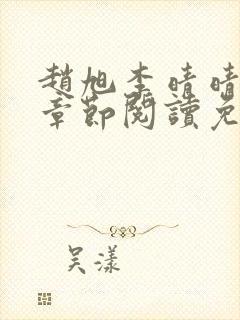 趙旭李晴晴
章節閱讀免
吴漾